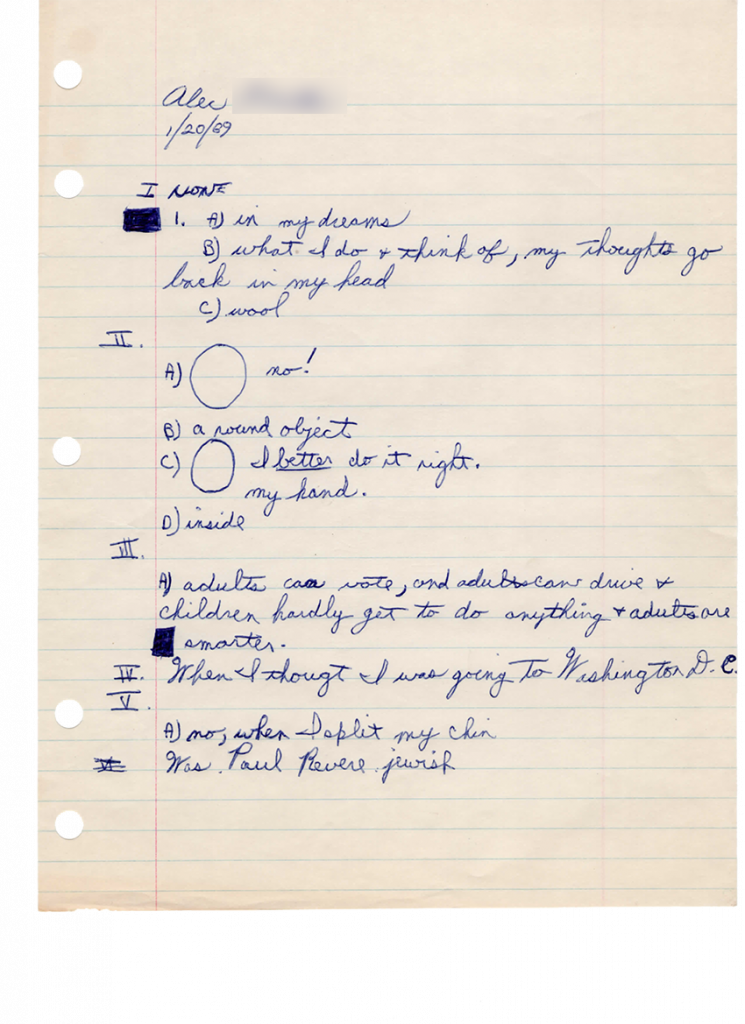 Alec
1/20/89
I NONE
1. A) in my dreams
B) what I do + think of, my thoughts go
back in my head
C) wool
II.
A) no!
B) a round object
C) I better do it right.
my hand.
D) inside
III.
A) adults can vote, and adults can drive +
children hardly get to do anything + adults are
smarter.
IV. When I thougt I was going to Washington D.C.
V.
A) no, when I split my chin
VI Was Paul Revere jewish